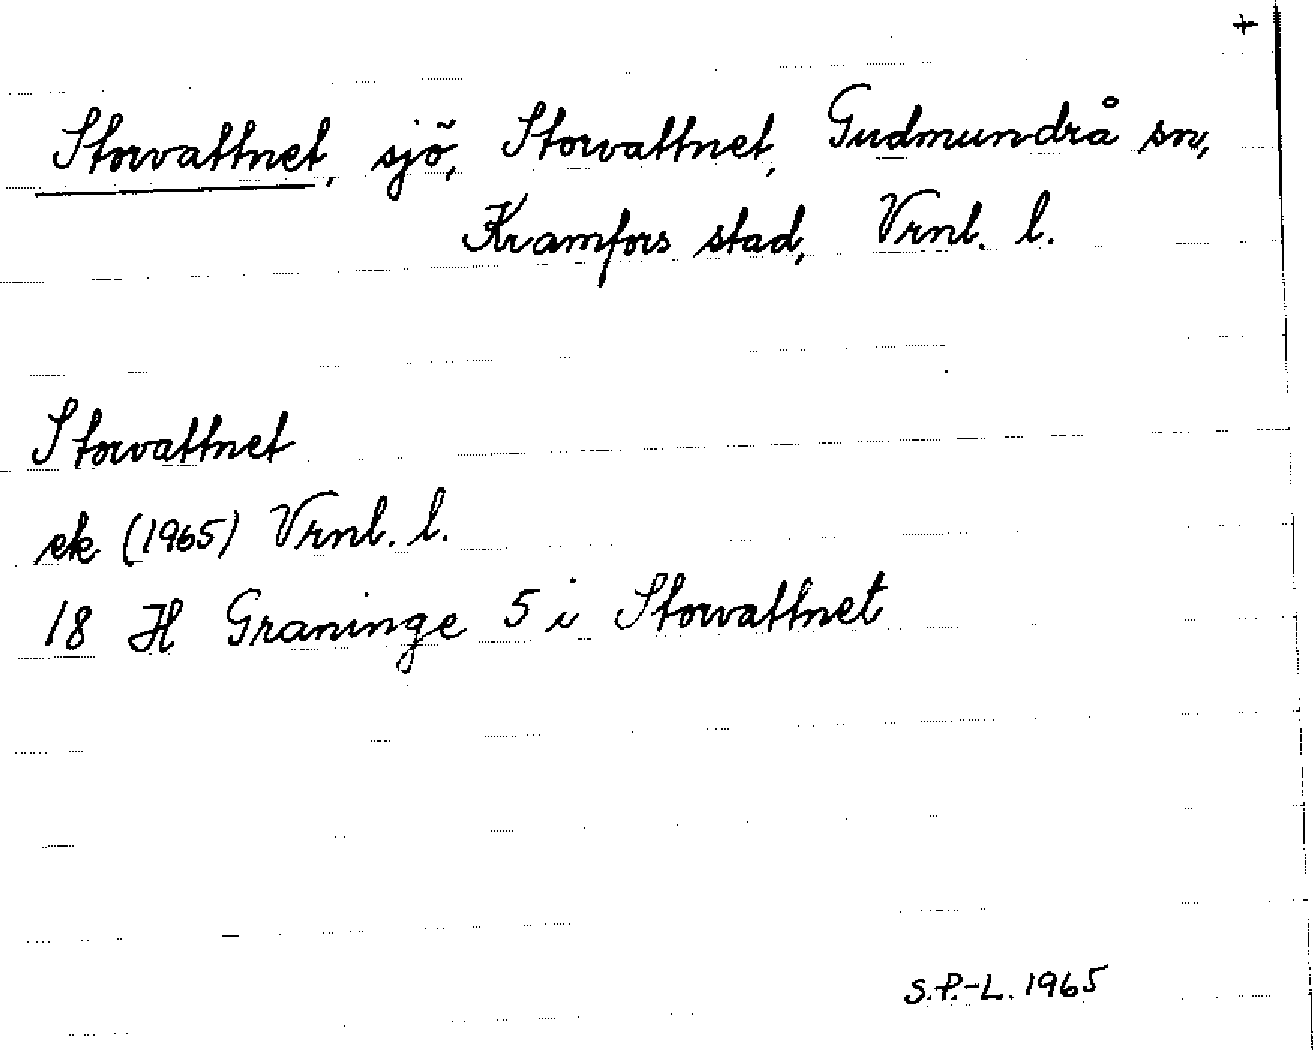 +
Storvattnet, sjö, Storvattnet, Gudmundrå sn,
Kramfors stad, Vrnl. l.
Storvattnet
ek (1965) Vrnl. l.
18 H Graninge 5 i Storvattnet
S.P.-L. 1965